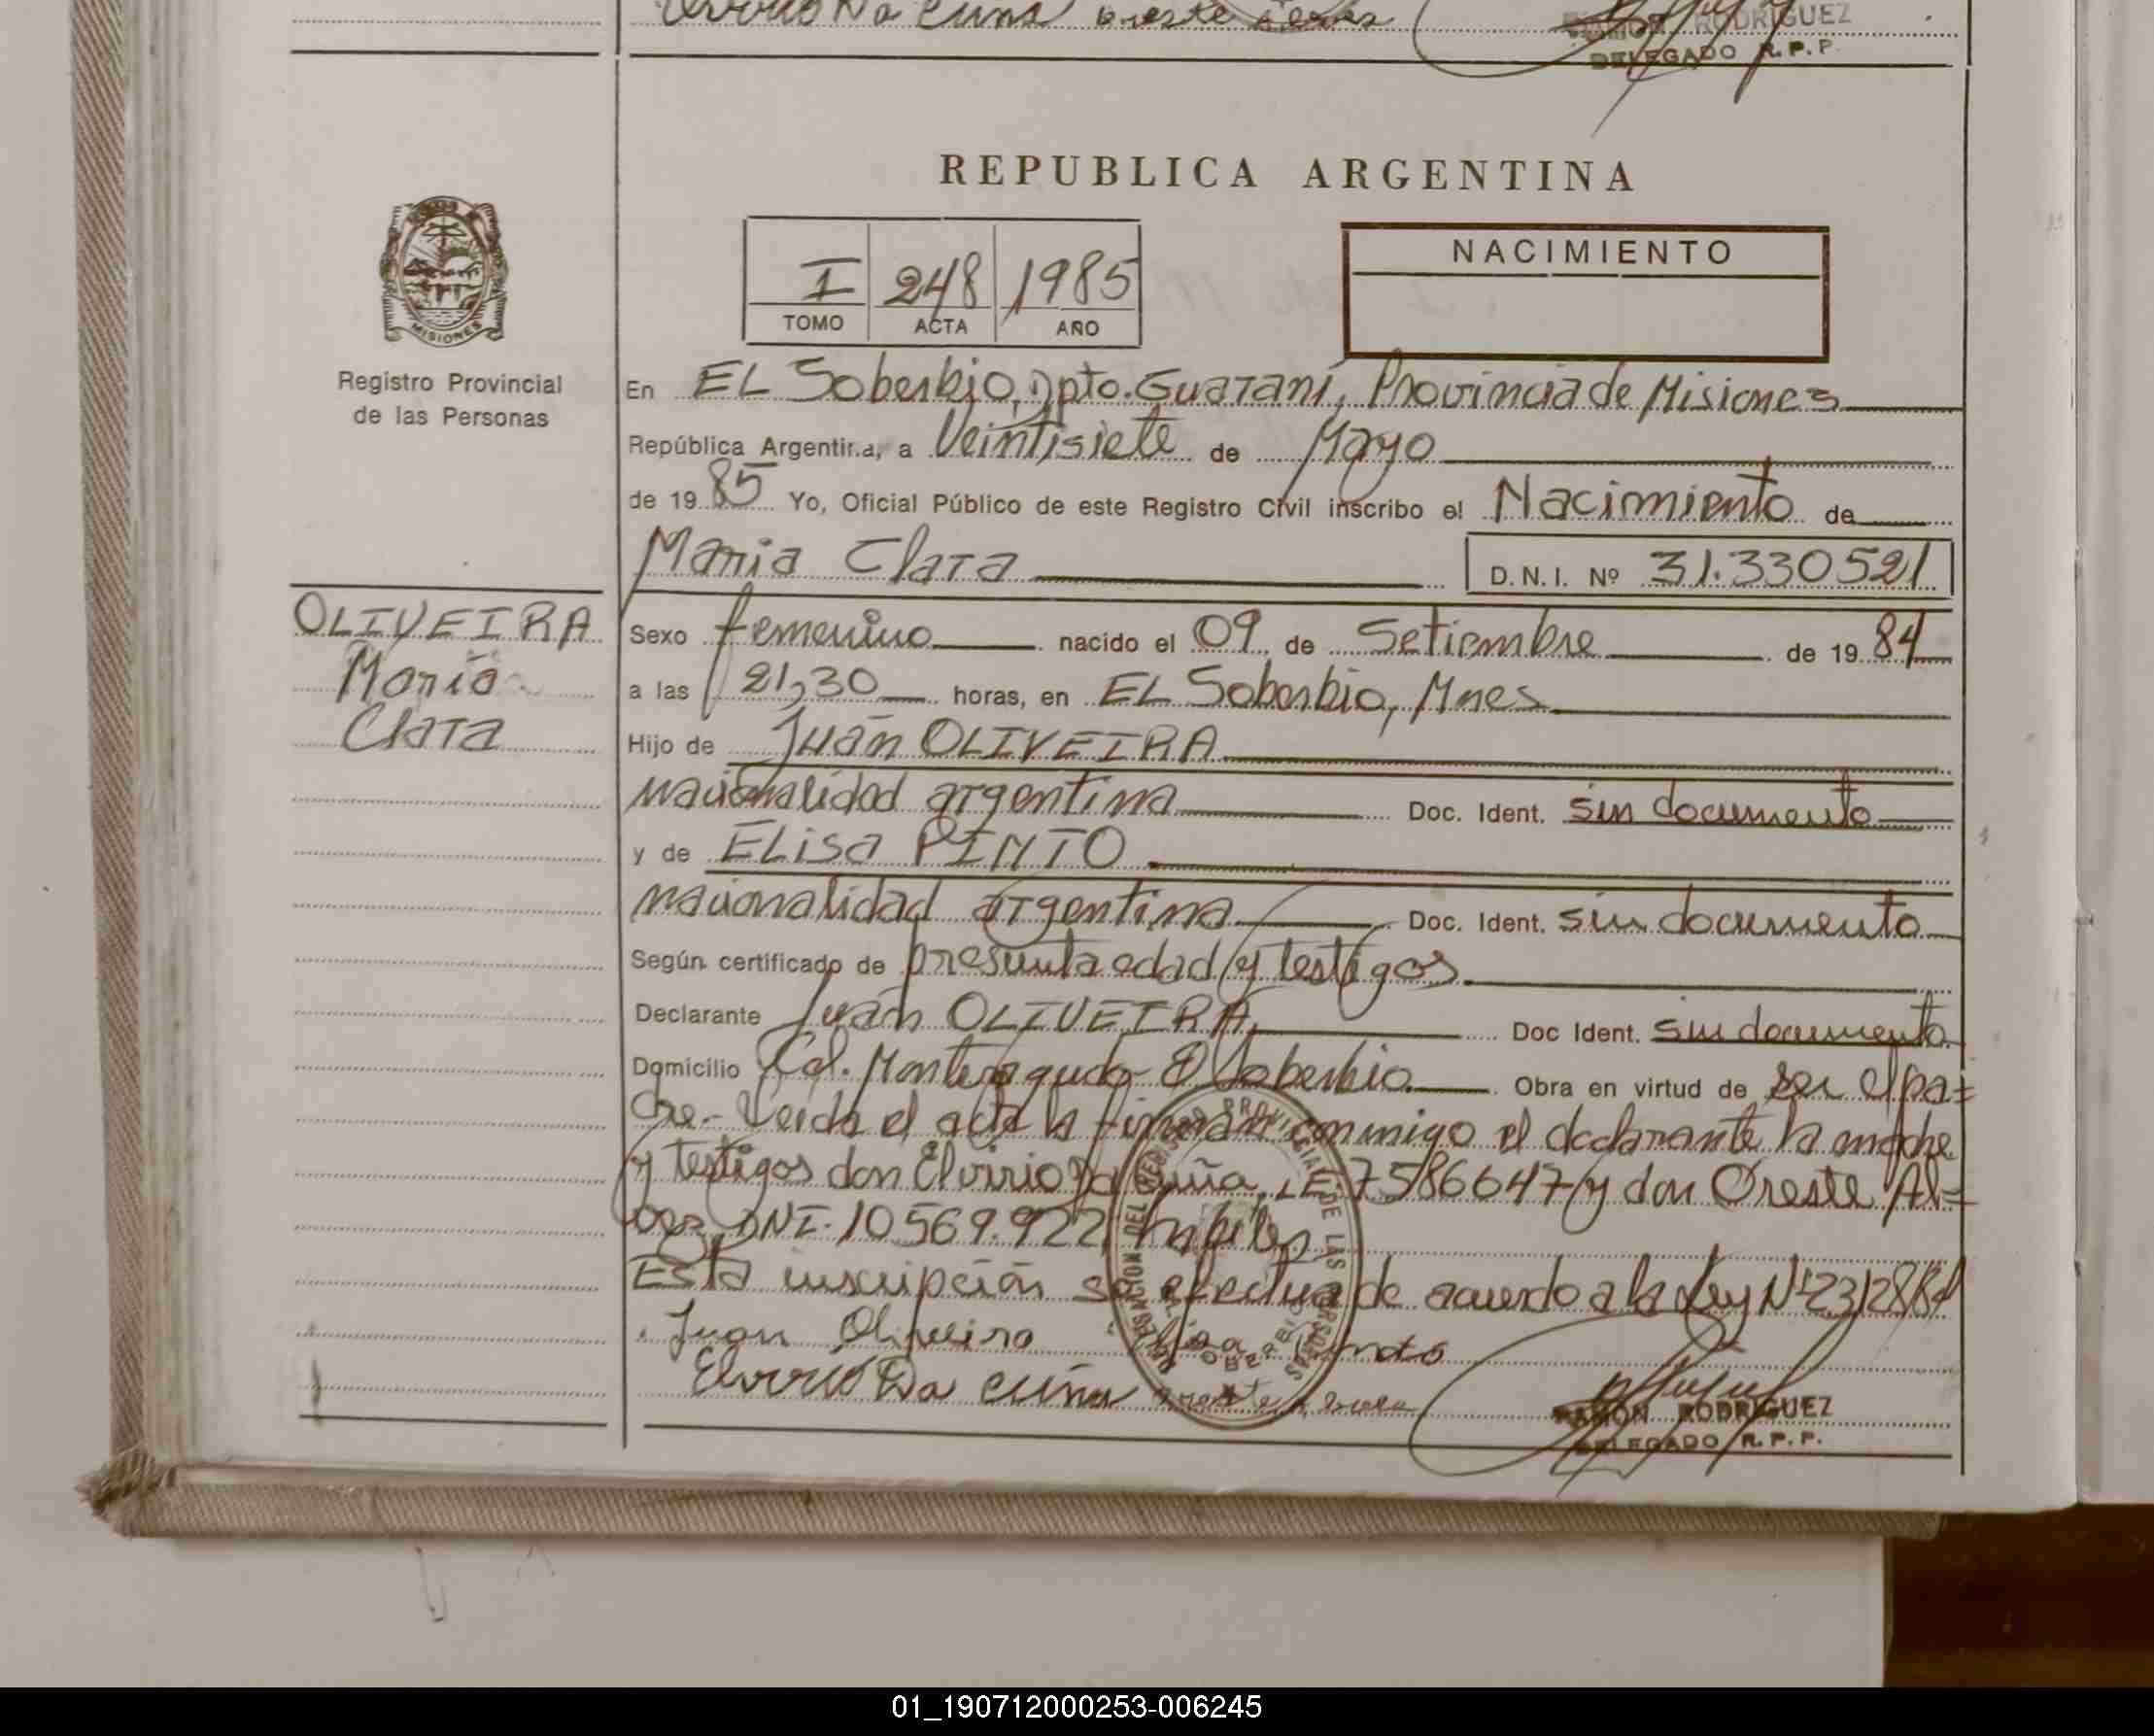 Elvirio Da Cuña Oreste Alves
RAMON RODRIGUEZ
DELEGADO R.P.P.
REPUBLICA ARGENTINA
I 248 1985
TOMO ACTA AÑO
NACIMIENTO
MISIONES
Registro Provincial
de las Personas
En EL Soberbio, Dpto. Guaraní, Provincia de Misiones
República Argentina, a Veintisiete de Mayo
de 1985 Yo, Oficial Público de este Registro Civil inscribo el Nacimiento de
Maria Clara D.N.I. Nº 31.330521
OLIVEIRA
Maria
Clara
Sexo femenino nacido el 09 de Setiembre de 1984
a las 21,30 horas, en EL Soberbio, Mnes
Hijo de Juán OLIVEIRA
nacionalidad argentina Doc. Ident. sin documento
y de ELisa PINTO
nacionalidad argentina Doc. Ident. sin documento
Según certificado de presunta edad y testigos
Declarante Juán OLIVEIRA, Doc Ident. sin documento
Domicilio Col. Monteagudo - El Soberbio Obra en virtud de ser el pa=
dre.- Leída el acta la firman conmigo el declarante la madre
y testigos don Elvirio Da Cuña, LE. 7586647 y don Oreste Al=
ves DNI. 10569.922, hábiles
Esta inscripción se efectua de acuerdo a la Ley Nº 2312884
Juan Oliveira Elisa Pinto
Elvirio Da Cuña Oreste
RAMON RODRIGUEZ
DELEGADO R.P.P.
01_190712000253-006245